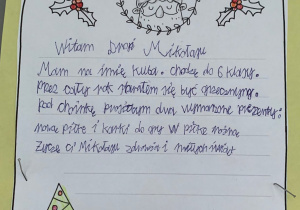 Witam Drogi Mikołaju
Mam na imię Kuba. chodzę do 6 klasy.
Przez cały rok starałem się być grzecznym.
Pod choinkę prosiłbym dwa wymarzone prezenty:
nową piłkę i korki do gry w piłkę nożną
Życzę Ci Mikołaju zdrowia i